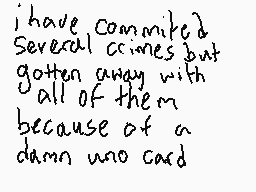 i have commited
several crimes but
gotten away with
all of them
because of a
damn uno card